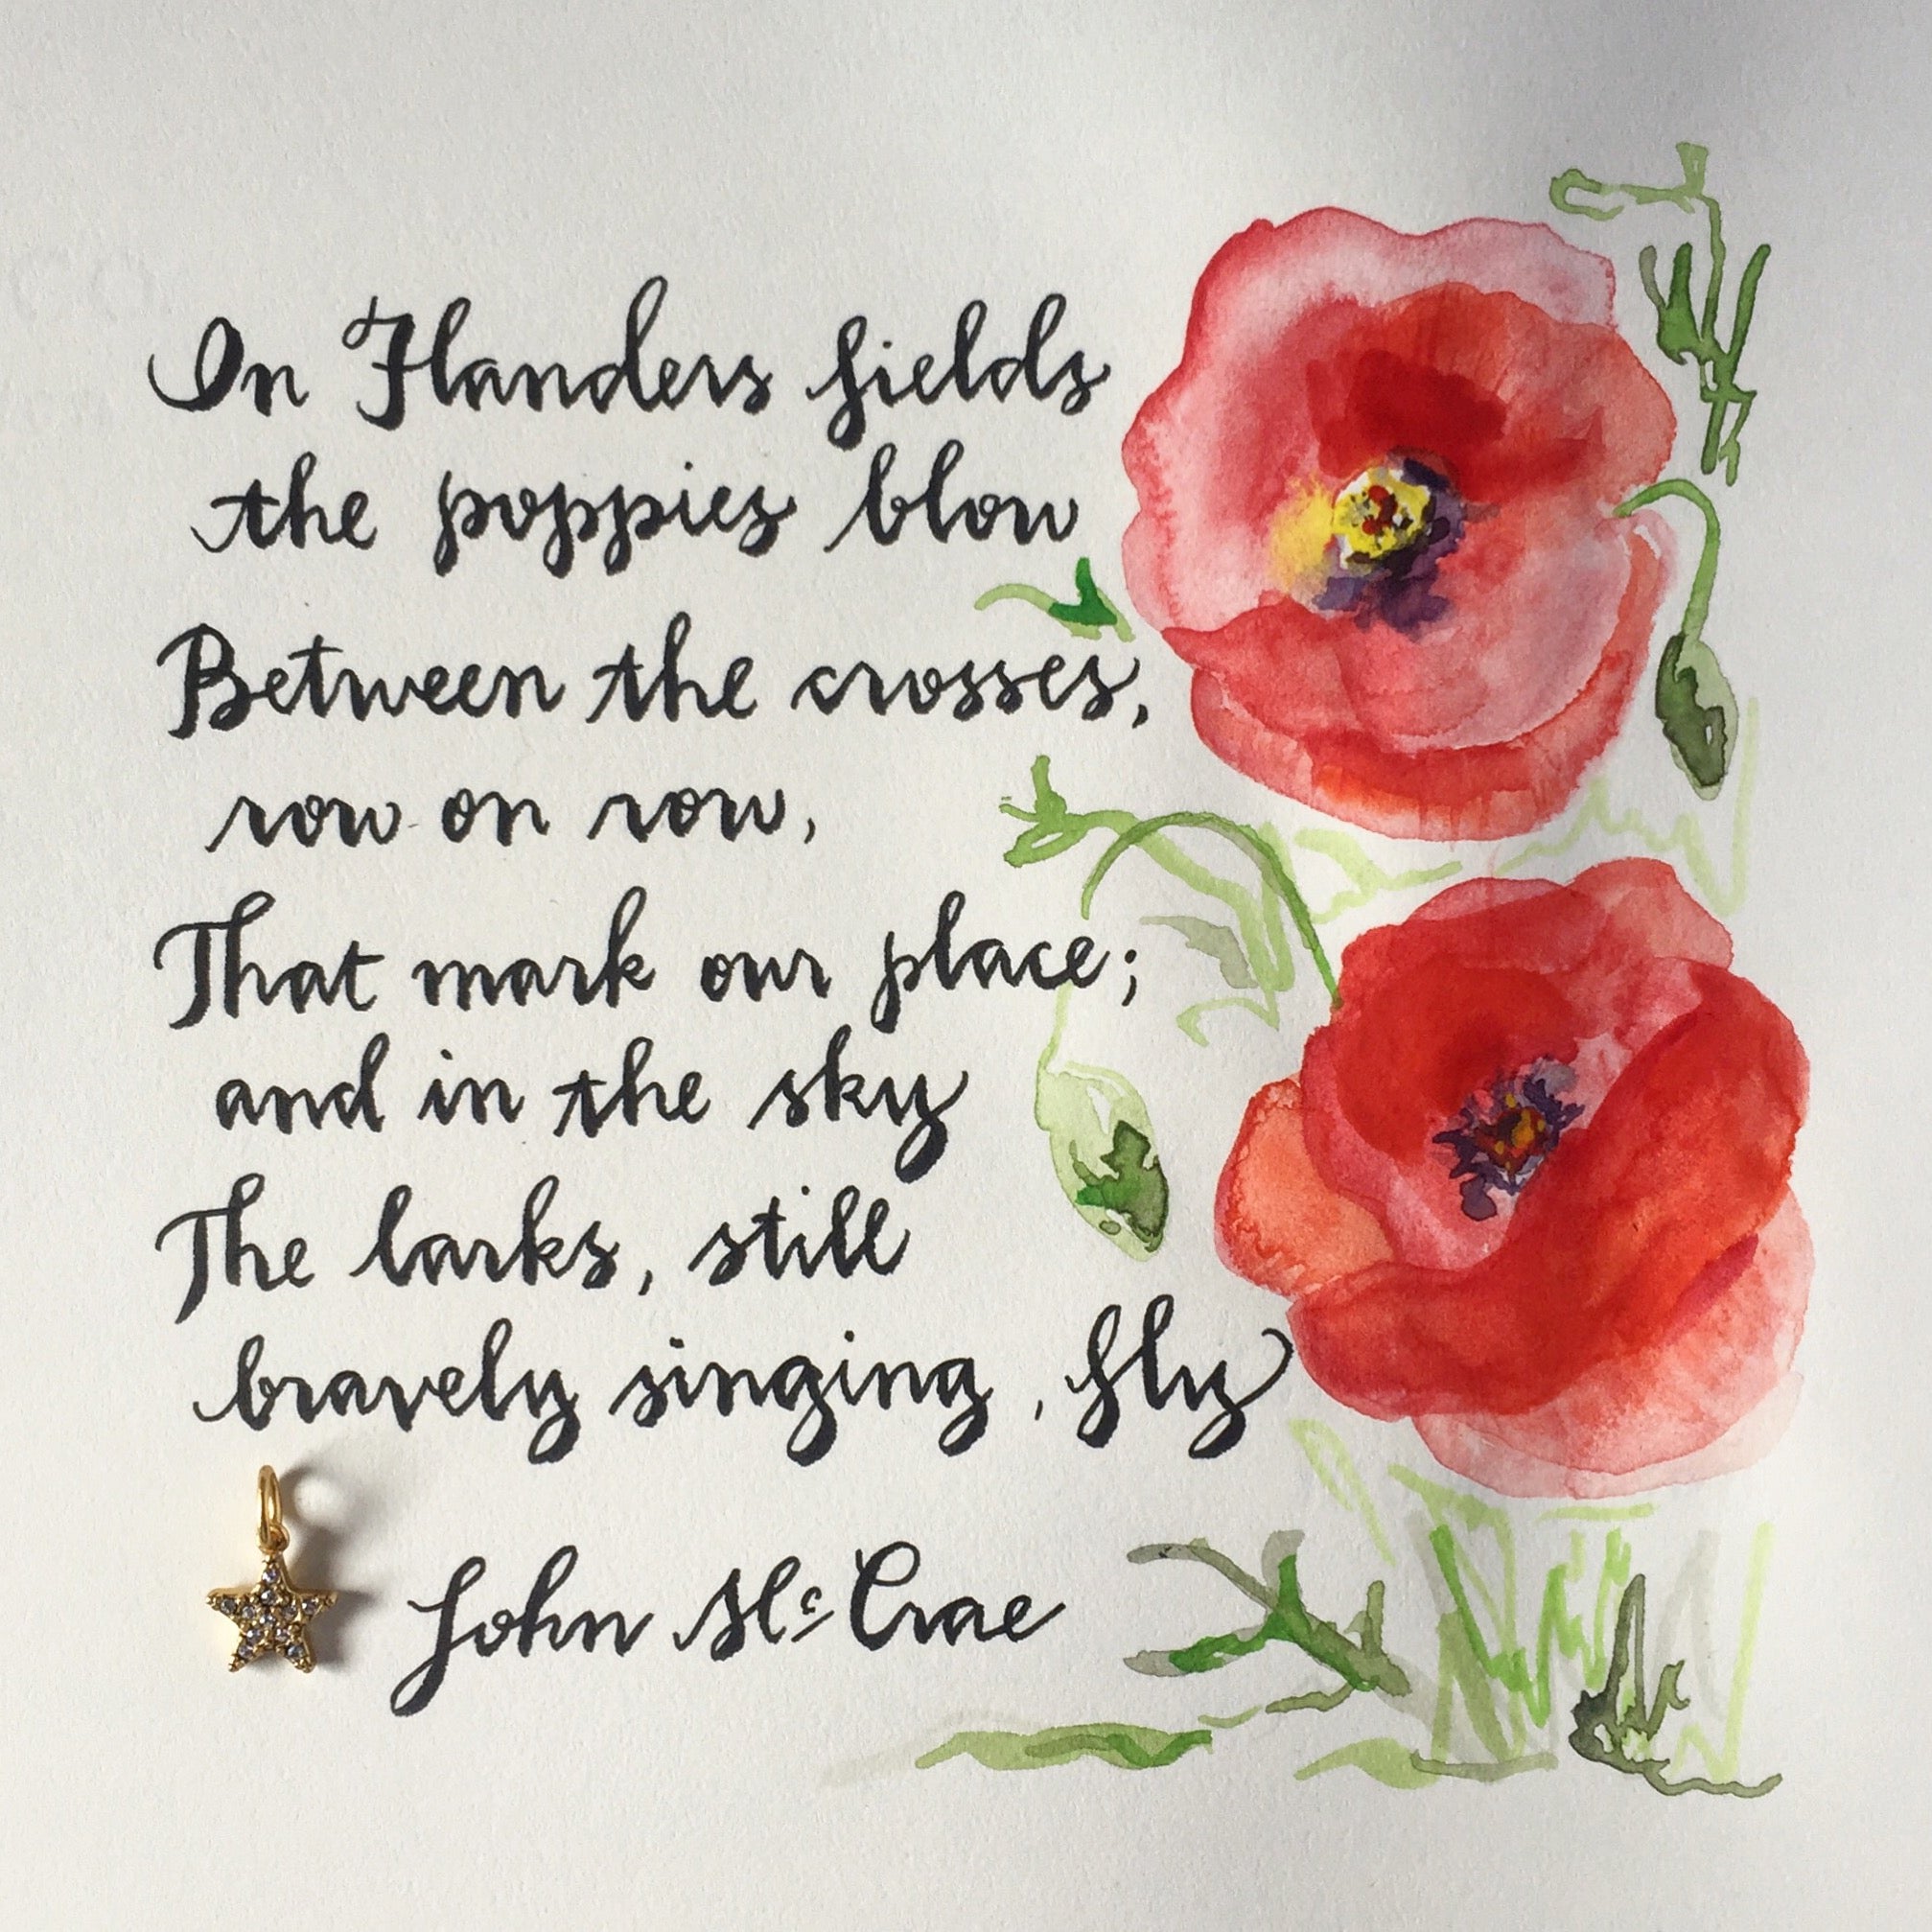 In Flanders fields
the poppies blow
Between the crosses,
row on row,
That mark our place;
and in the sky
The larks, still
bravely singing, fly
John McCrae